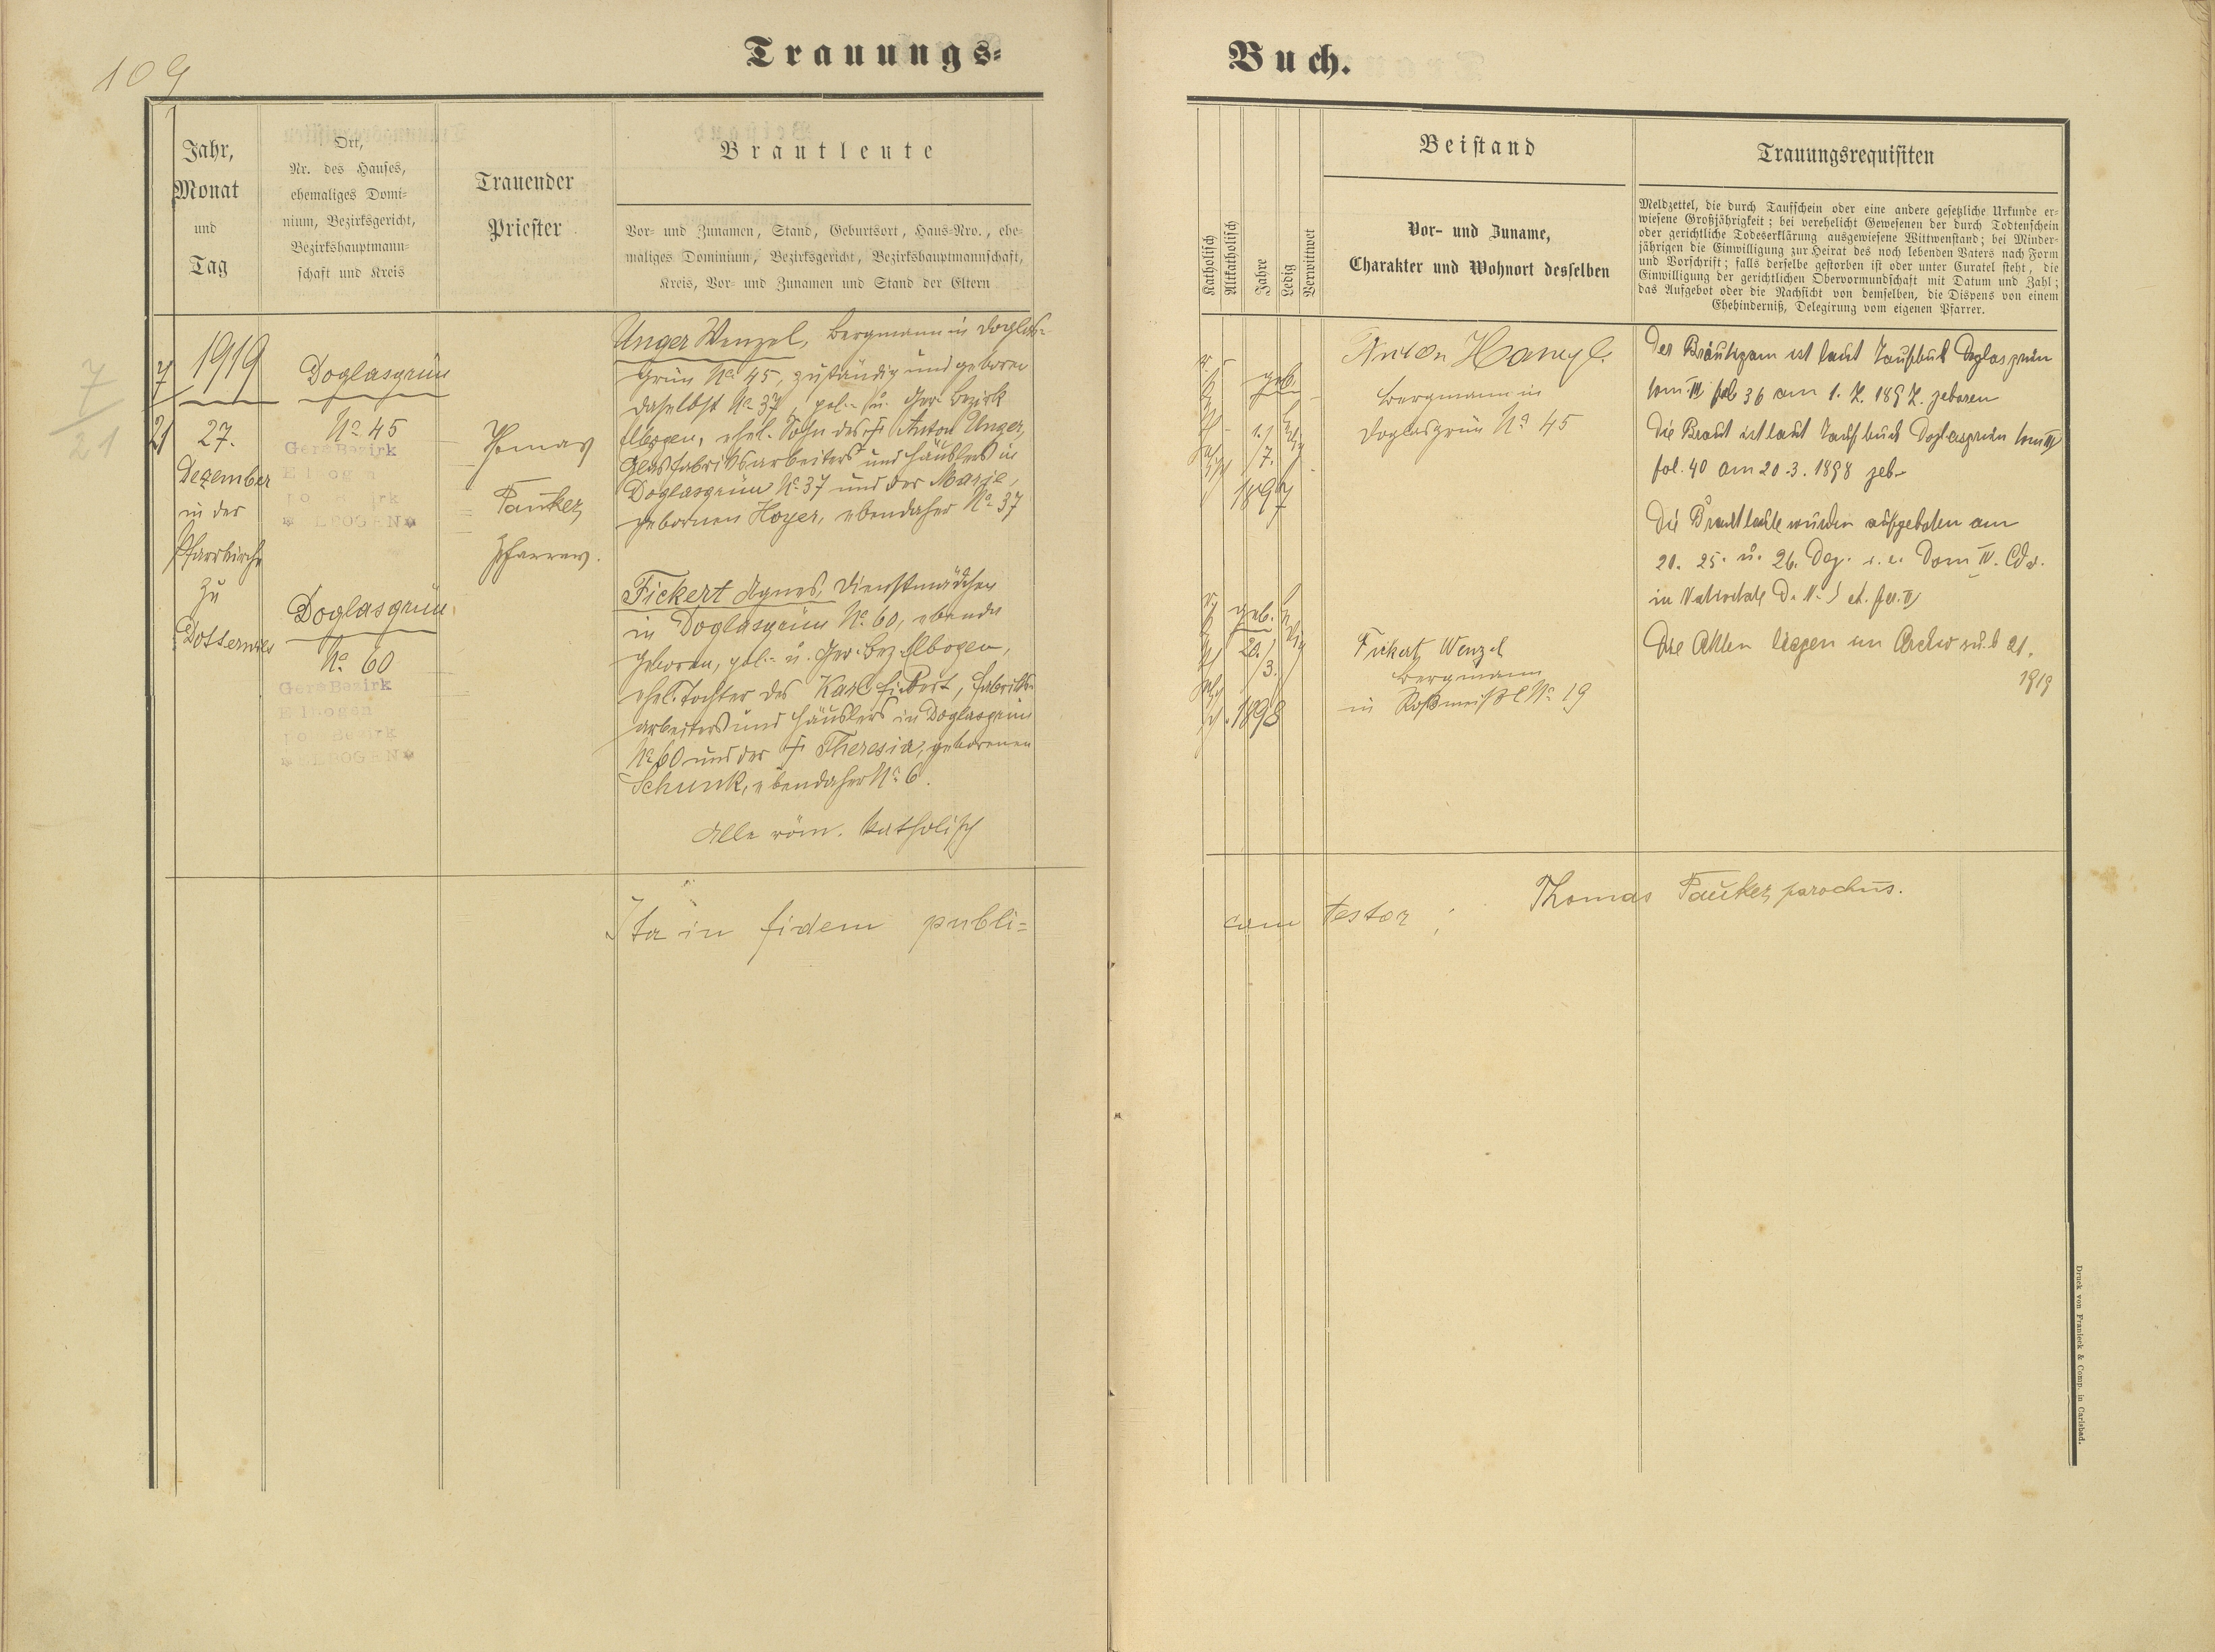 109
Trauungs=
Jahr,
Monat
und
Tag
Ort,
Nr. des Hauses,
ehemaliges Domi-
nium, Bezirksgericht,
Bezirkshauptmann-
schaft und Kreis
Trauender
Priester
Brautleute
Vor- und Zunamen, Stand, Geburtsort, Haus-Nro., ehe-
maliges Dominium, Bezirksgericht, Bezirkshauptmannschaft,
Kreis, Vor- und Zunamen und Stand der Eltern
7
21
7
21
1919
27.
Dezember
in der
Pfarrkirche
zu
Dotterwies
Doglasgrün
No 45
Gers Bezirk
ELBOGEN
Doglasgrün
No 60
Gers Bezirk
Elbogen
pol Bezirk
ELBOGEN
Thomas
Pauker
Pfarrer.
Unger Wenzel, Bergmann in Doglas=
grün No 45, zuständig und geboren
daselbst No 37, pol.- u. Ger. Bezirk
Elbogen, ehel. Sohn des † Anton Unger,
Glasfabriksarbeiters und Häuslers in
Doglasgrün No 37 und der Marie,
gebornen Hoyer, ebendaher No 37
Fickert Agnes, Dienstmädchen
in Doglasgrün No 60, ebenda
geboren, pol.- u. Ger. Bez. Elbogen,
ehel. Tochter des Karl Fickert, Fabriks-
arbeiters und Häuslers in Doglasgrün
No 60 und der † Theresia, geborenen
Schunk, ebendaher No 6.
Alle röm. katholisch
Ita in fidem publi=
Buch.
Katholisch
Altkatholisch
Jahre
Ledig
Verwittwet
Beistand
Vor- und Zuname,
Charakter und Wohnort desselben
Trauungsrequisiten
Meldzettel, die durch Taufschein oder eine andere gesetzliche Urkunde er-
wiesene Großjährigkeit; bei verehelicht Gewesenen der durch Todtenschein
oder gerichtliche Todeserklärung ausgewiesene Wittwenstand; bei Minder-
jährigen die Einwilligung zur Heirat des noch lebenden Vaters nach Form
und Vorschrift; falls derselbe gestorben ist oder unter Curatel steht, die
Einwilligung der gerichtlichen Obervormundschaft mit Datum und Zahl;
das Aufgebot oder die Nachsicht von demselben, die Dispens von einem
Ehehinderniß, Delegirung vom eigenen Pfarrer.
geb.
1./
7.
1897
ledig
geb.
20./
3.
1898
ledig
Anton Hanyl.
Bergmann in
Doglasgrün No 45
Fickert Wenzel
Bergmann
in Roßmeißl No 19
Der Bräutigam ist laut Taufbuch Doglasgrün
tom. III fol 36 am 1. 7. 1897. geboren
Die Braut ist laut Taufbuch Doglasgrün tom III
fol. 40 am 20.3. 1898 geb.
Die Brautleute wurden aufgeboten am
21. 25. u. 26. Dez. i. e. Dom IV. Adv.
in Nativitate D. N. J et fer. II
Die Akten liegen im Archiv sub 21.
1919
cam testor: Thomas Pauker, parochus.
Druck von Franieck & Comp. in Carlsbad.